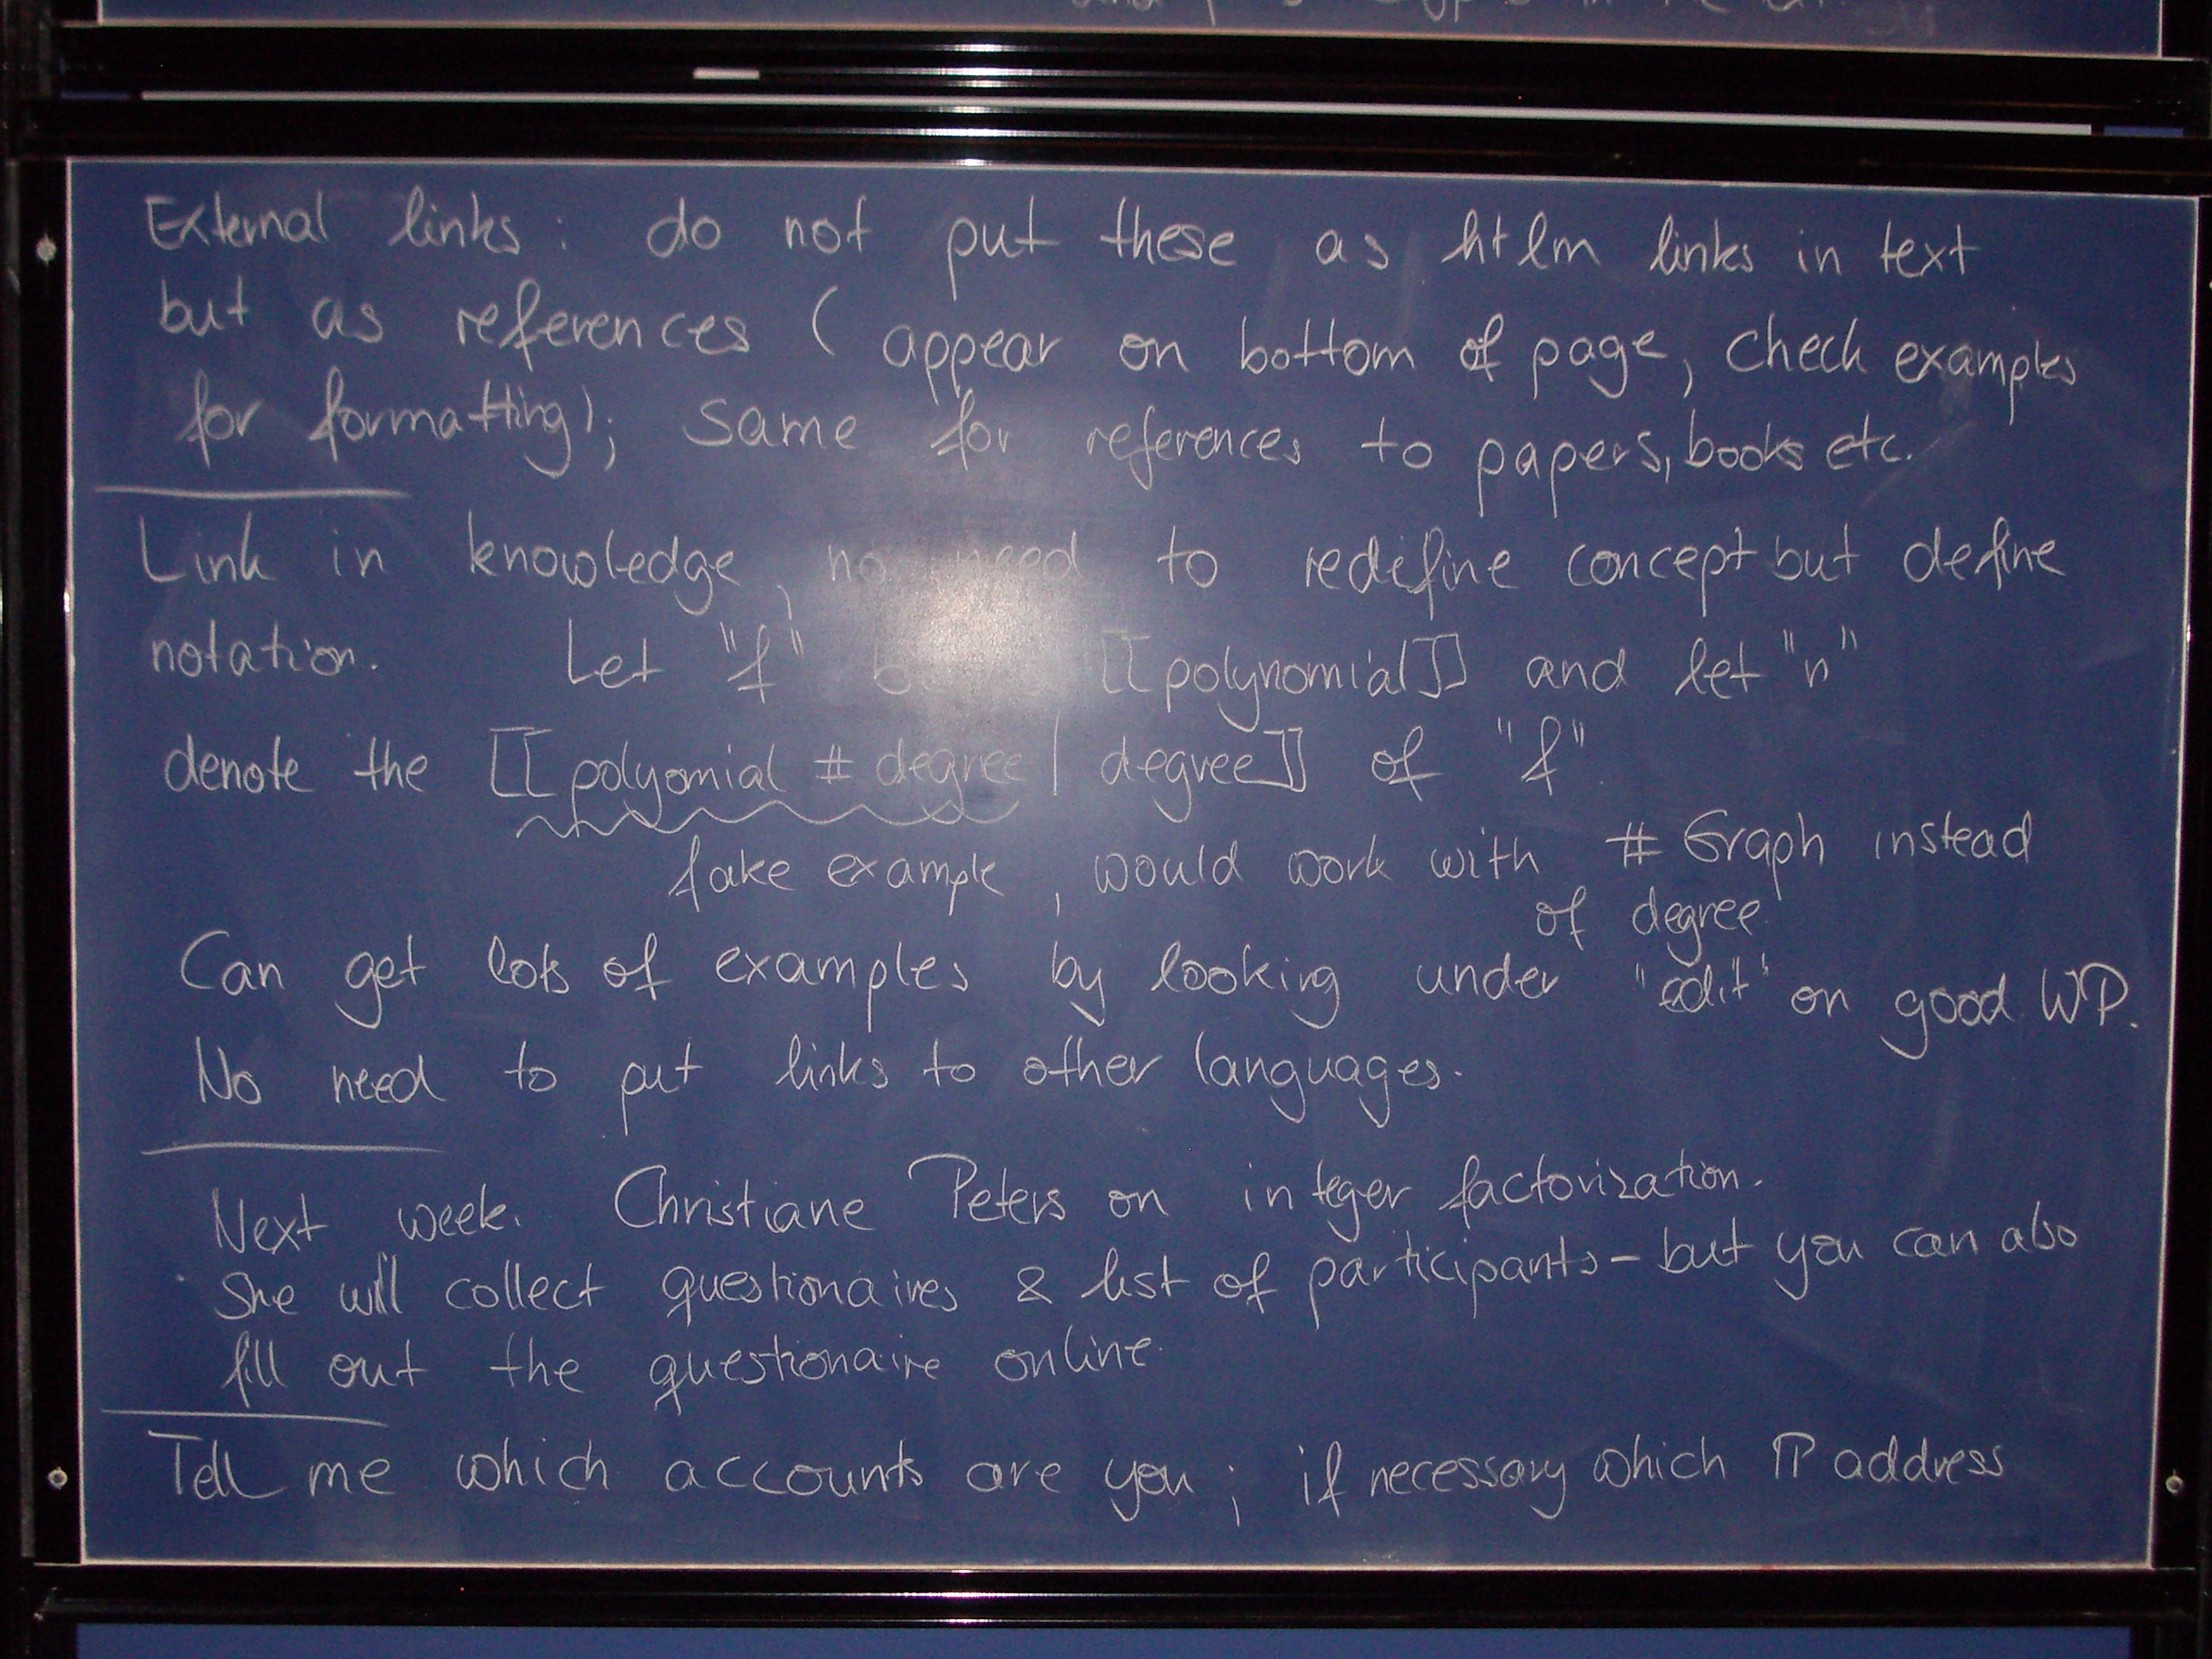 External links: do not put these as htlm links in text
but as references (appear on bottom of page, check examples
for formatting); same for references to papers, books etc.
Link in knowledge, no need to redefine concept but define
notation. Let "f" be [[polynomial]] and let "n"
denote the [[polyomial # degree | degree]] of "f"
fake example, would work with # Graph instead
of degree
Can get lots of examples by looking under "edit" on good WP.
No need to put links to other languages.
Next week. Christiane Peters on integer factorization.
She will collect questionaires & list of participants - but you can also
fill out the questionaire online.
Tell me which accounts are you; if necessary which IP address